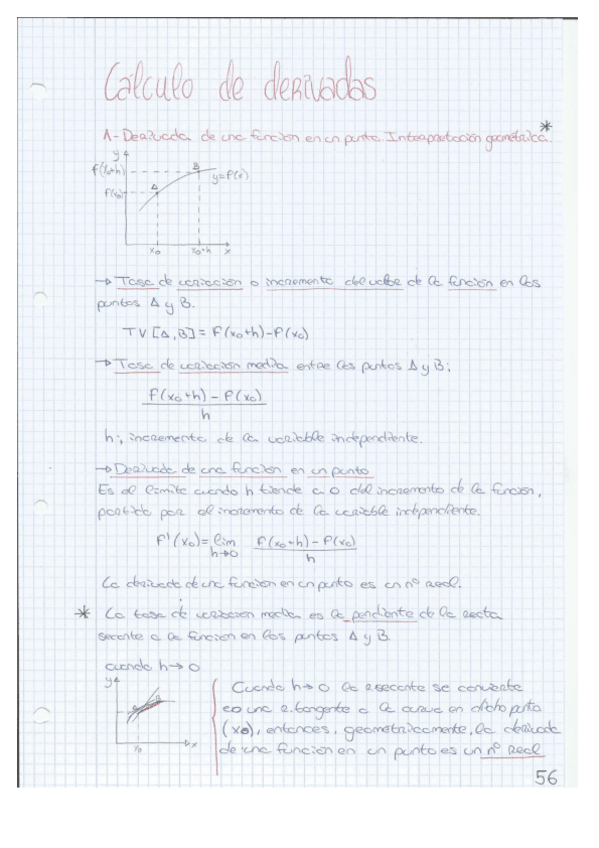 Cálculo de derivadas
1-Derivada de una función en un punto. Interpretación geométrica. *
y
f(x₀+h)
B
y=f(x)
f(x₀)
A
x₀ x₀+h x
→ Tasa de variación o incremento del valor de la función en los
puntos A y B.
TV [A,B] = f(x₀+h)-f(x₀)
→ Tasa de variación media entre los puntos A y B:
f(x₀+h) - f(x₀)
h
h: incremento de la variable independiente.
→ Derivada de una función en un punto
Es el límite cuando h tiende a 0 del incremento de la función,
partido por el incremento de la variable independiente.
f'(x₀) = lim f(x₀+h) - f(x₀)
h→0 h
La derivada de una función en un punto es un nº real.
* La tasa de variación media es la pendiente de la recta
secante a la función en los puntos A y B.
cuando h→0
y
x₀ x
Cuando h→0 la r.secante se convierte
en una r.tangente a la curva en dicho punto
(x₀), entonces, geométricamente, la derivada
de una función en un punto es un nº real
56